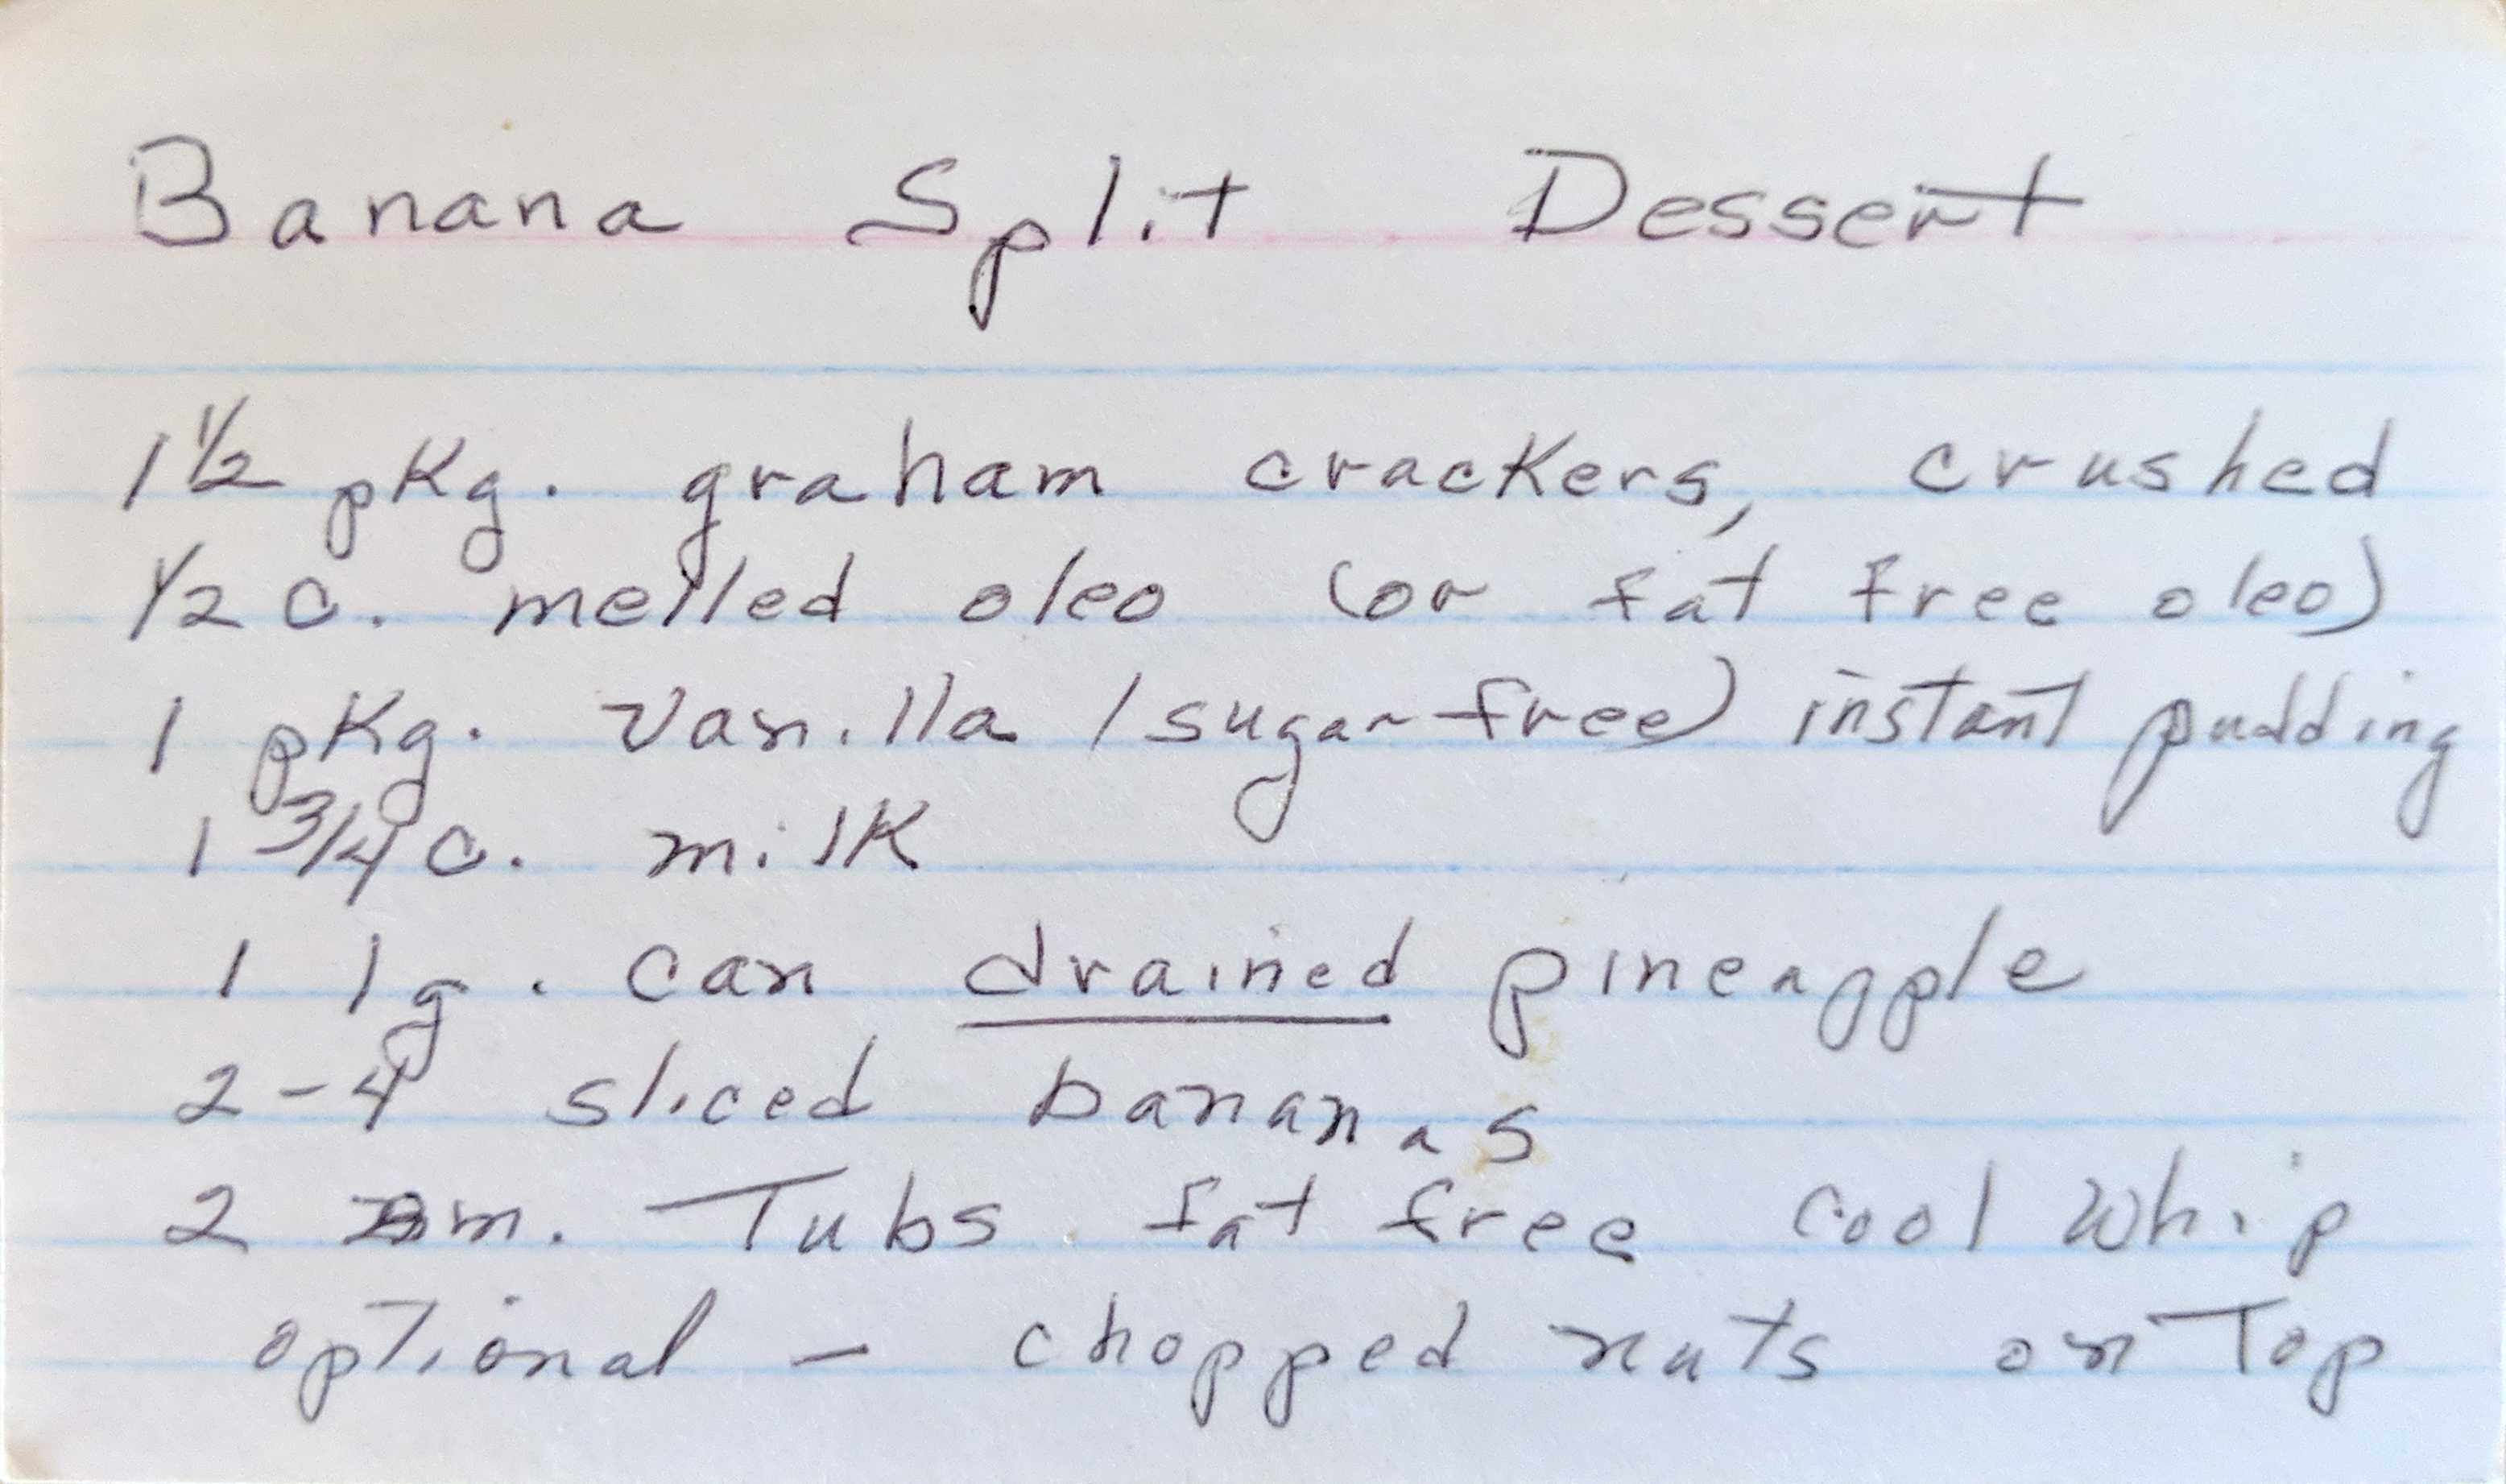 Banana Split Dessert
1 1/2 pkg. graham crackers, crushed
1/2 c. melted oleo (or fat free oleo)
1 pkg. Vanilla (sugar free) instant pudding
1 3/4 c. milk
1 lg. can drained pineapple
2-4 sliced bananas
2 sm. Tubs fat free cool whip
optional - chopped nuts on Top